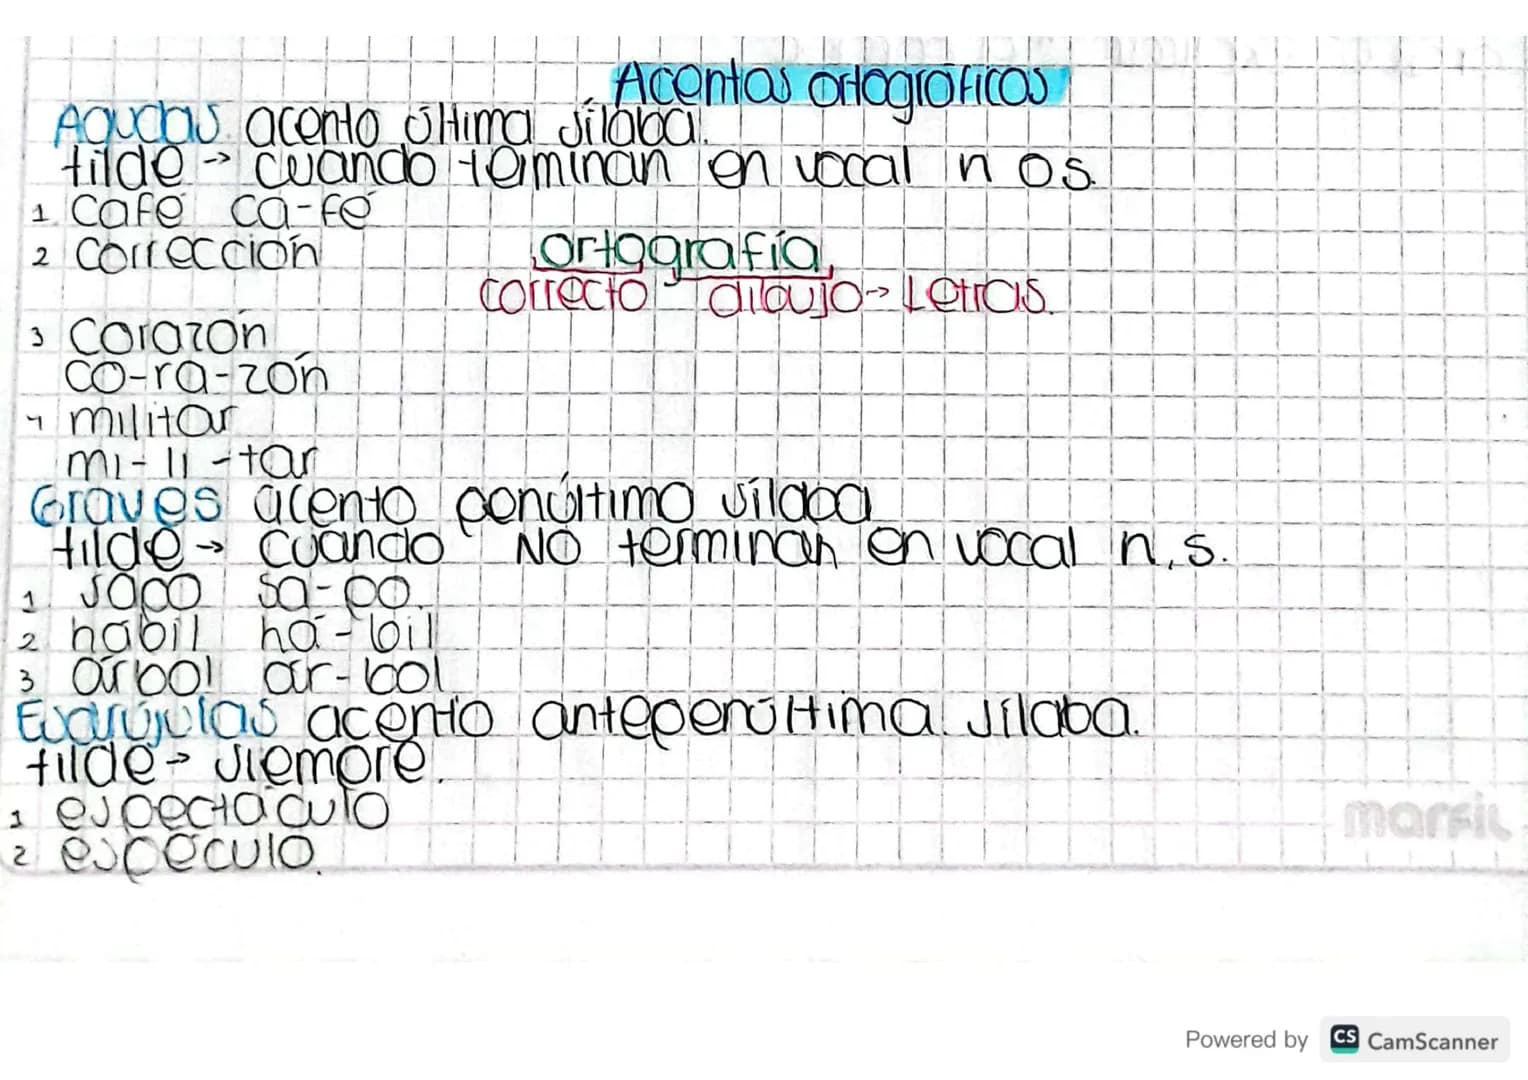 Acentos ortográficos
Agudas. acento última sílaba.
tilde → cuando terminan en vocal n o s.
1. café ca-fé
2 corrección
ortografía
correcto dibujo → Letras.
3 corazón
co-ra-zón
4 militar
mi-li-tar
Graves acento penúltimo sílaba
tilde → cuando NO terminan en vocal n, s.
1. sapo sa-po.
2 hábil há-bil
3 árbol ár-bol
Esdrújulas acento antepenúltima sílaba.
tilde → siempre.
1 espectáculo
2 espéculo.
marfil
Powered by CS CamScanner